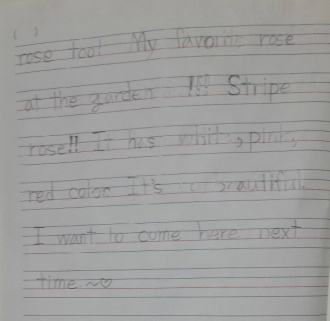 ( )
rose too! My favorite rose
at the garden !!! Stripe
rose!! It has white, pink,
red color. It's beautiful.
I want to come here next
time ~♡